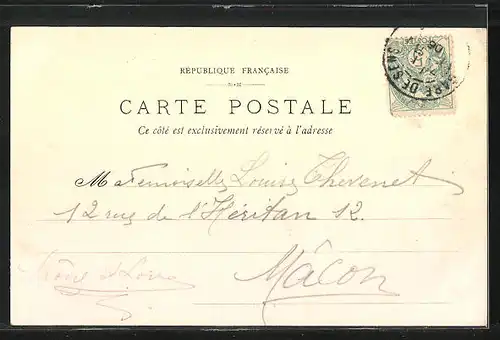 RÉPUBLIQUE FRANÇAISE
CARTE POSTALE
Ce côté est exclusivement réservé à l'adresse
GARE DE SENS
Mademoiselle Louise Thevenet
12 rue de l'Héritan 12.
Mâcon
Saône et Loire